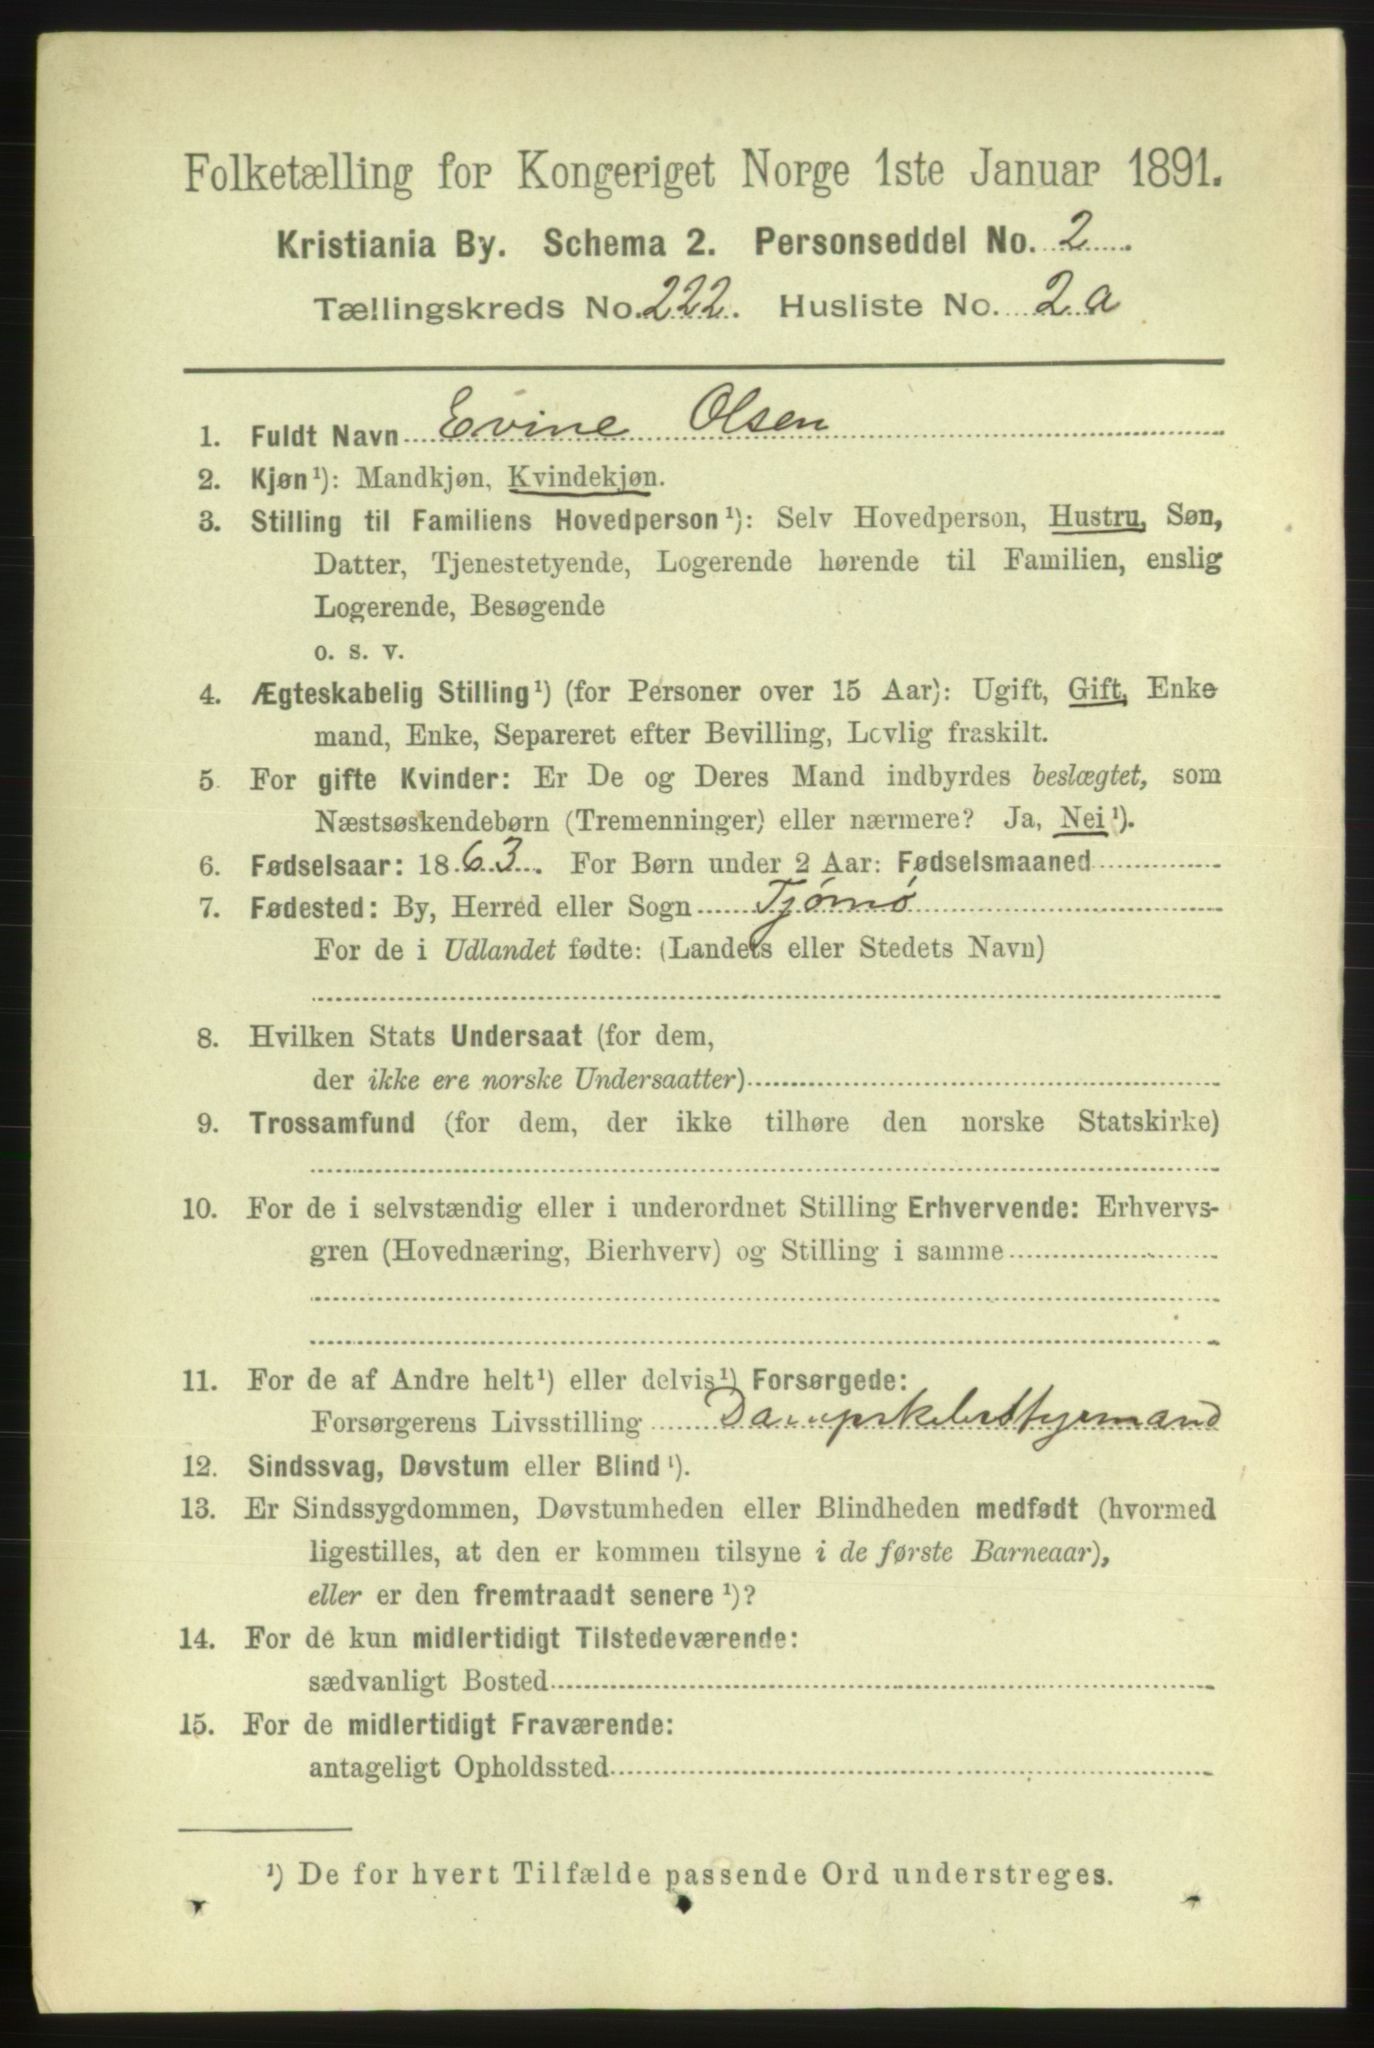 Folketælling for Kongeriget Norge 1ste Januar 1891.
Kristiania By. Schema 2. Personseddel No. 2
Tællingskreds No. 222. Husliste No. 2 a
1. Fuldt Navn Evine Olsen
2. Kjøn¹): Mandkjøn, Kvindekjøn.
3. Stilling til Familiens Hovedperson¹): Selv Hovedperson, Hustru, Søn,
Datter, Tjenestetyende, Logerende hørende til Familien, enslig
Logerende, Besøgende
o. s. v.
4. Ægteskabelig Stilling¹) (for Personer over 15 Aar): Ugift, Gift, Enke
mand, Enke, Separeret efter Bevilling, Lovlig fraskilt.
5. For gifte Kvinder: Er De og Deres Mand indbyrdes beslægtet, som
Næstsøskendebørn (Tremenninger) eller nærmere? Ja, Nei¹).
6. Fødselsaar: 1863. For Børn under 2 Aar: Fødselsmaaned
7. Fødested: By, Herred eller Sogn Tjømø
For de i Udlandet fødte: (Landets eller Stedets Navn)
8. Hvilken Stats Undersaat (for dem,
der ikke ere norske Undersaatter)
9. Trossamfund (for dem, der ikke tilhøre den norske Statskirke)
10. For de i selvstændig eller i underordnet Stilling Erhvervende: Erhvervs-
gren (Hovednæring, Bierhverv) og Stilling i samme
11. For de af Andre helt¹) eller delvis¹) Forsørgede:
Forsørgerens Livsstilling
12. Sindssvag, Døvstum eller Blind¹).
13. Er Sindssygdommen, Døvstumheden eller Blindheden medfødt (hvormed
ligestilles, at den er kommen tilsyne i de første Barneaar),
eller er den fremtraadt senere¹)?
14. For de kun midlertidigt Tilstedeværende:
sædvanligt Bosted
15. For de midlertidigt Fraværende:
antageligt Opholdssted
¹) De for hvert Tilfælde passende Ord understreges.